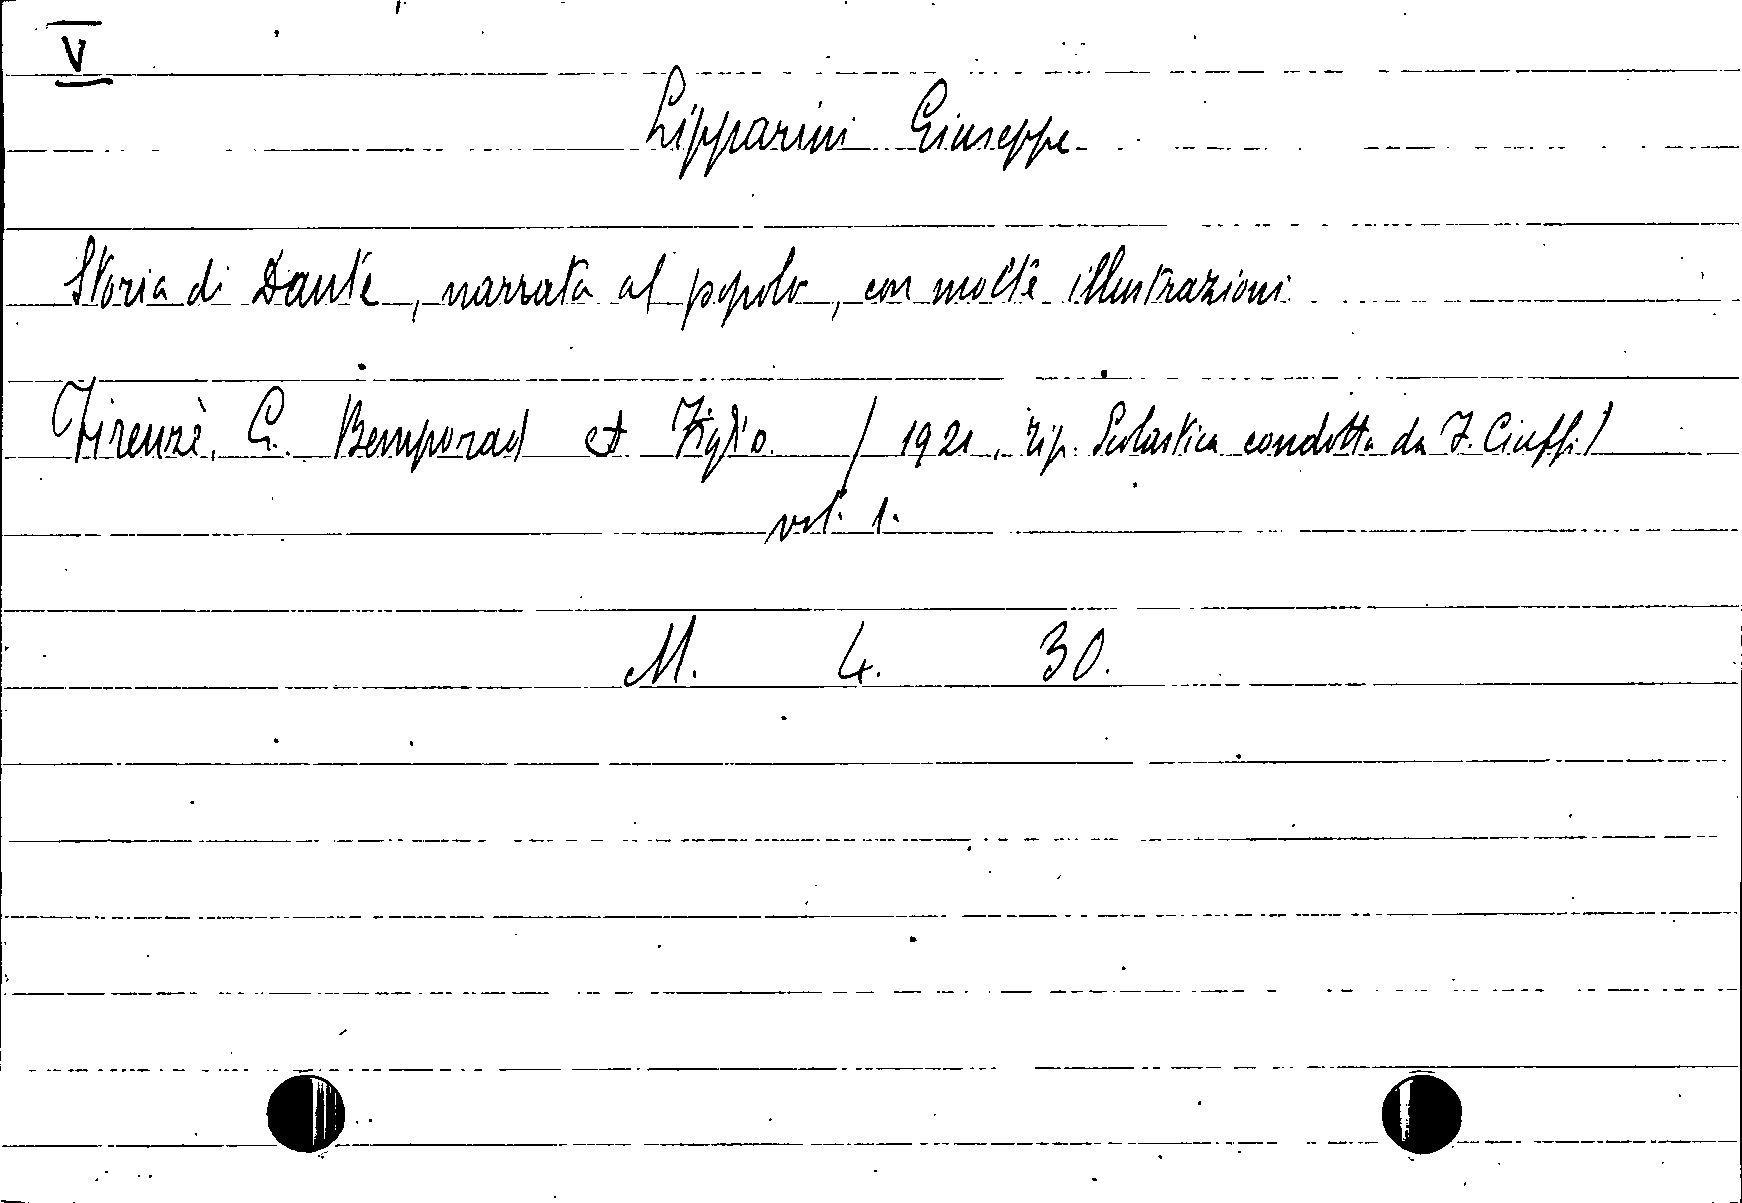 V
Lipparini Giuseppe
Storia di Dante, narrata al popolo, con molte illustrazioni
Firenze, G. Bemporad et Figlio. / 1921, tip. Scolastica condotta da F. Ciuffi /
vol. 1.
M. 4. 30.